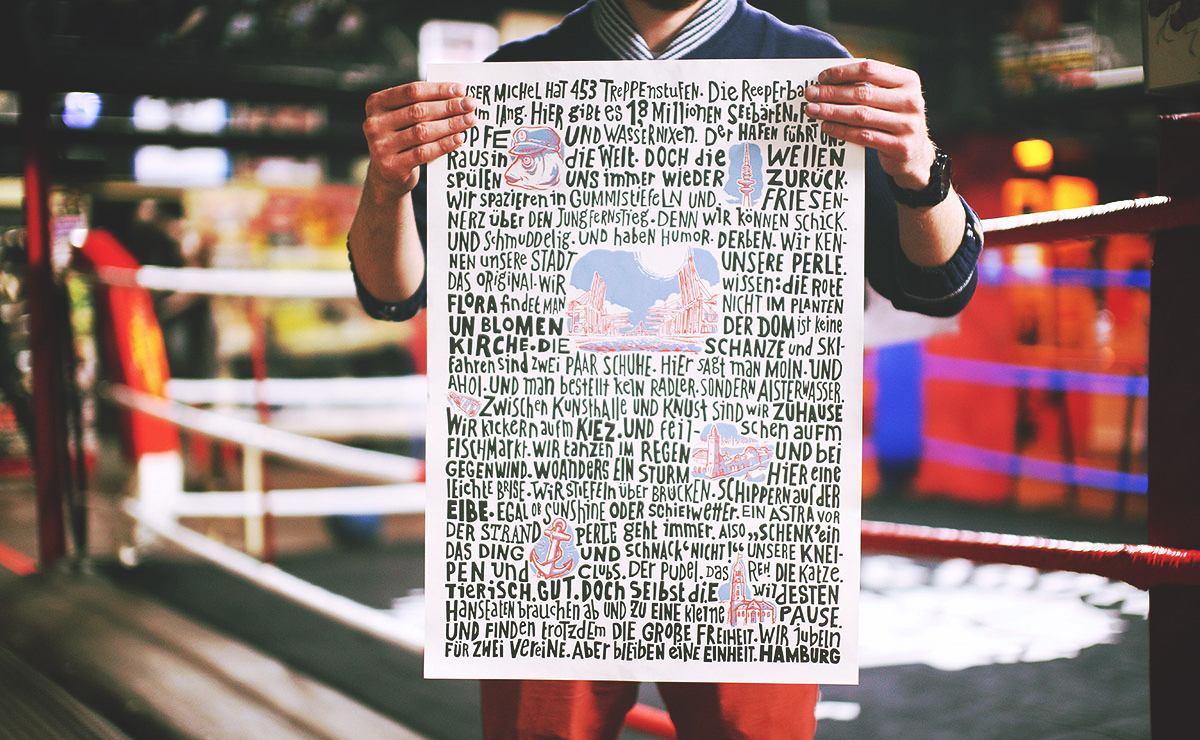 SER MICHEL HAT 453 TREPPENSTUFEN. Die REEPERBA
m lang. HIER gibt es 1,8 Millionen SEEBÄREN.
PFE UND WASSERNIXEN. DER HAFEN FÜHRT UNS
RAUS in die WELT. DOCH die WELLEN
SPÜLEN UNS immer WIEDER ZURÜCK.
Wir spazieren in GUMMISTIEFELN UND FRIESEN-
NERZ über DEN JUNGFERNSTIEG. DENN WIR KÖNNEN SCHICK.
UND SCHMUDDELIG. UND haben HUMOR. DERBEN. Wir KEN-
NEN UNSERE STADT UNSERE PERLE.
DAS ORIGINAL. WIR WISSEN: die ROTE
FLORA findet MAN NICHT IM PLANTEN
UN BLOMEN DER DOM ist keine
KIRCHE. DIE SCHANZE und SKI-
fahren sind zwei PAAR SCHUHE. HiER SAGT man MOIN. UND
AHOI. UND man bestellt kein RADLER. SONDERN ALSTERWASSER.
ZWISCHEN KUNSTHALLE UND KNUST SIND WIR ZUHAUSE
WIR KICKERN aufm KIEZ. UND feil- schen aufm
FISCHMARKT. WIR tanzen IM REGEN UND bei
GEGENWIND. WOANDERS EIN STURM HIER eine
leichte BRISE. WIR STIEFELN über BRÜCKEN. SCHIPPERN auf DER
ELBE. EGAL OB SUNSHINE ODER Schietwetter. EIN ASTRA VOR
DER STRAND PERLE geht immer. Also „SCHENK' ein
DAS DING UND SCHNACK' NICHT!“ UNSERE KNEI-
PEN UND CLUBS. DER PUDEL. DAS REH. DIE KATZE.
TIERISCH. GUT. DOCH SELBST diE wilDESTEN
HANSEATEN brauchen ab UND ZU EINE kleine PAUSE.
UND FINDEN trotzdem DIE GROßE FREIHEIT. WIR jubeln
FÜR ZWEI VEREINE. ABER BLEIBEN EINE EINHEIT. HAMBURG